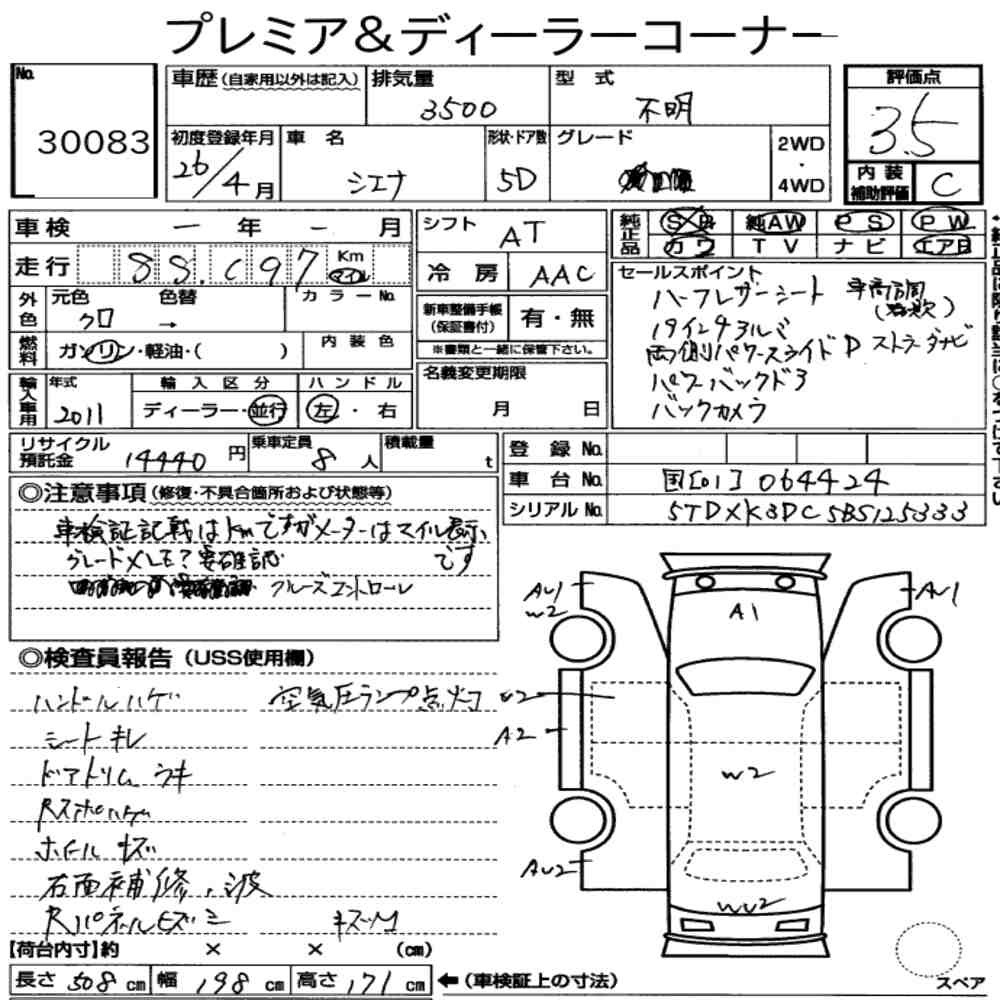 プレミア&ディーラーコーナー
No.
30083
車歴(自家用以外は記入)
排気量
3500
型 式
不明
評価点
3.5
初度登録年月
26/4月
車 名
シエナ
形状・ドア数
5D
グレード
2WD
・
4WD
内 装
補助評価
C
車検 一 年 - 月
走行 88.097 Km マイル
シフト
AT
純正品
SR 純AW PS PW
カワ TV ナビ エアB
冷 房
AAC
外色
元色 色替 カラーNo.
クロ →
新車整備手帳
(保証書付)
有・無
※書類と一緒に保管下さい。
燃料
ガソリン・軽油・( )
内 装 色
名義変更期限
月 日
輸入車用
年式
2011
輸 入 区 分
ディーラー・並行
ハ ン ド ル
左・右
セールスポイント
ハーフレザーシート
19インチアルミ
両側パワースライドD
パワーバックドア
バックカメラ
リサイクル
預託金
14440 円
乗車定員
8 人
積載量
t
登 録 No.
車 台 No. 国[01]064424
シリアル No. 5TDXK3DC5BS125333
◎注意事項(修復・不具合箇所および状態等)
車検証記載はKmですがメーターはマイル表示
グレードXLE?要確認 です
クルーズコントロール
◎検査員報告(USS使用欄)
ハンドルハゲ 空気圧ランプ点灯
シートキレ
ドアトリムウキ
ホイールキズ
右面補修、波
【荷台内寸】約 × × (cm)
長さ 508 cm 幅 198 cm 高さ 171 cm
←(車検証上の寸法)
AU1
W2
A1
AU1
U2
A2
W2
AU2
WU2
スペア